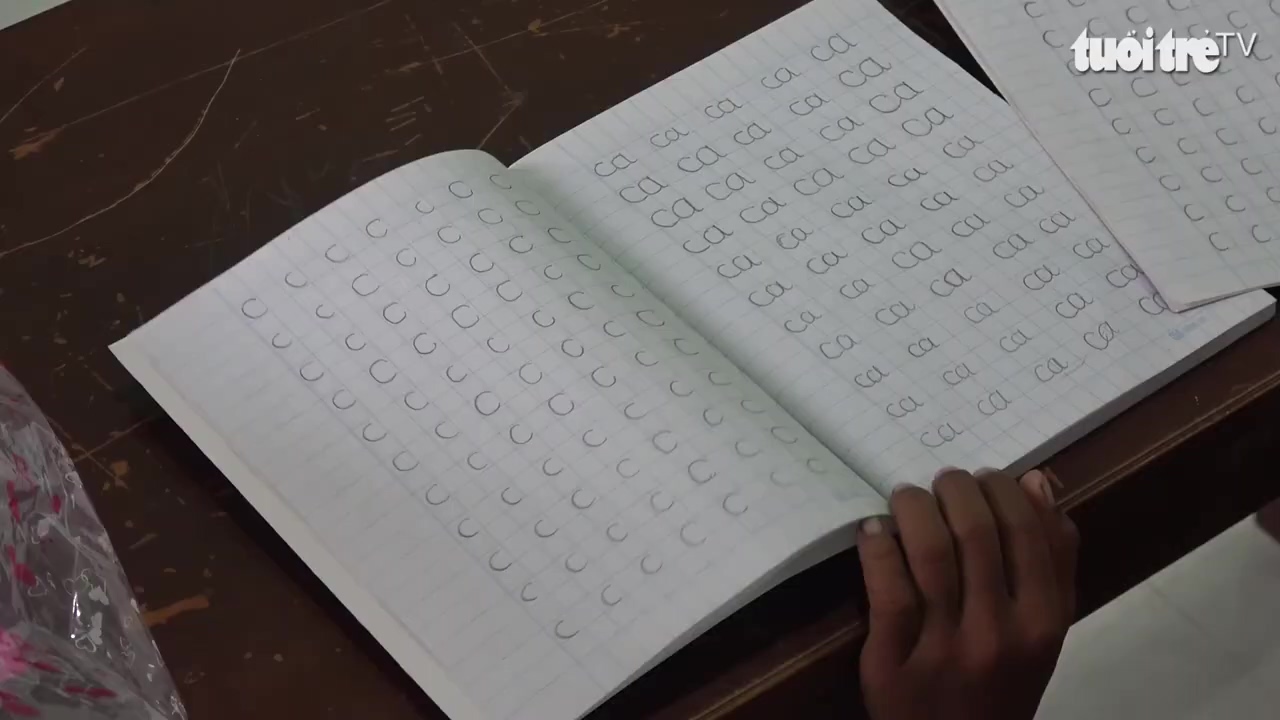 c c c c c c c
c c c c c c c
c c c c c c c
c c c c c c c
c c c c c c c
c c c c c c c
c c c c c c c
c c c c c c c
c c c c c c c
c c c c c c c
c c c c c c c
ca ca ca ca ca
ca ca ca ca ca
ca ca ca ca ca
ca ca ca ca ca
ca ca ca ca ca
ca ca ca ca ca
ca ca ca ca ca
ca ca ca ca ca
ca ca ca ca ca
ca ca ca ca ca
ca ca ca ca ca
tuổi trẻ TV